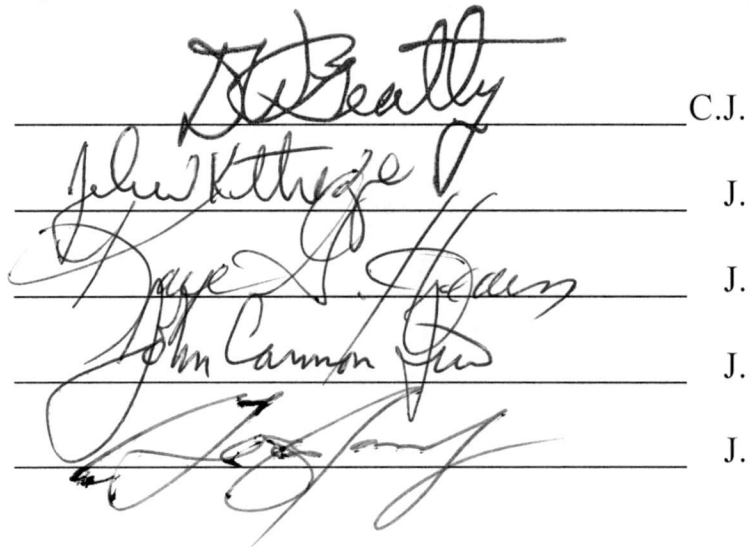 DW Beatty C.J.
John Kittredge J.
Kaye G. Hearn J.
John Cannon Few J.
J.